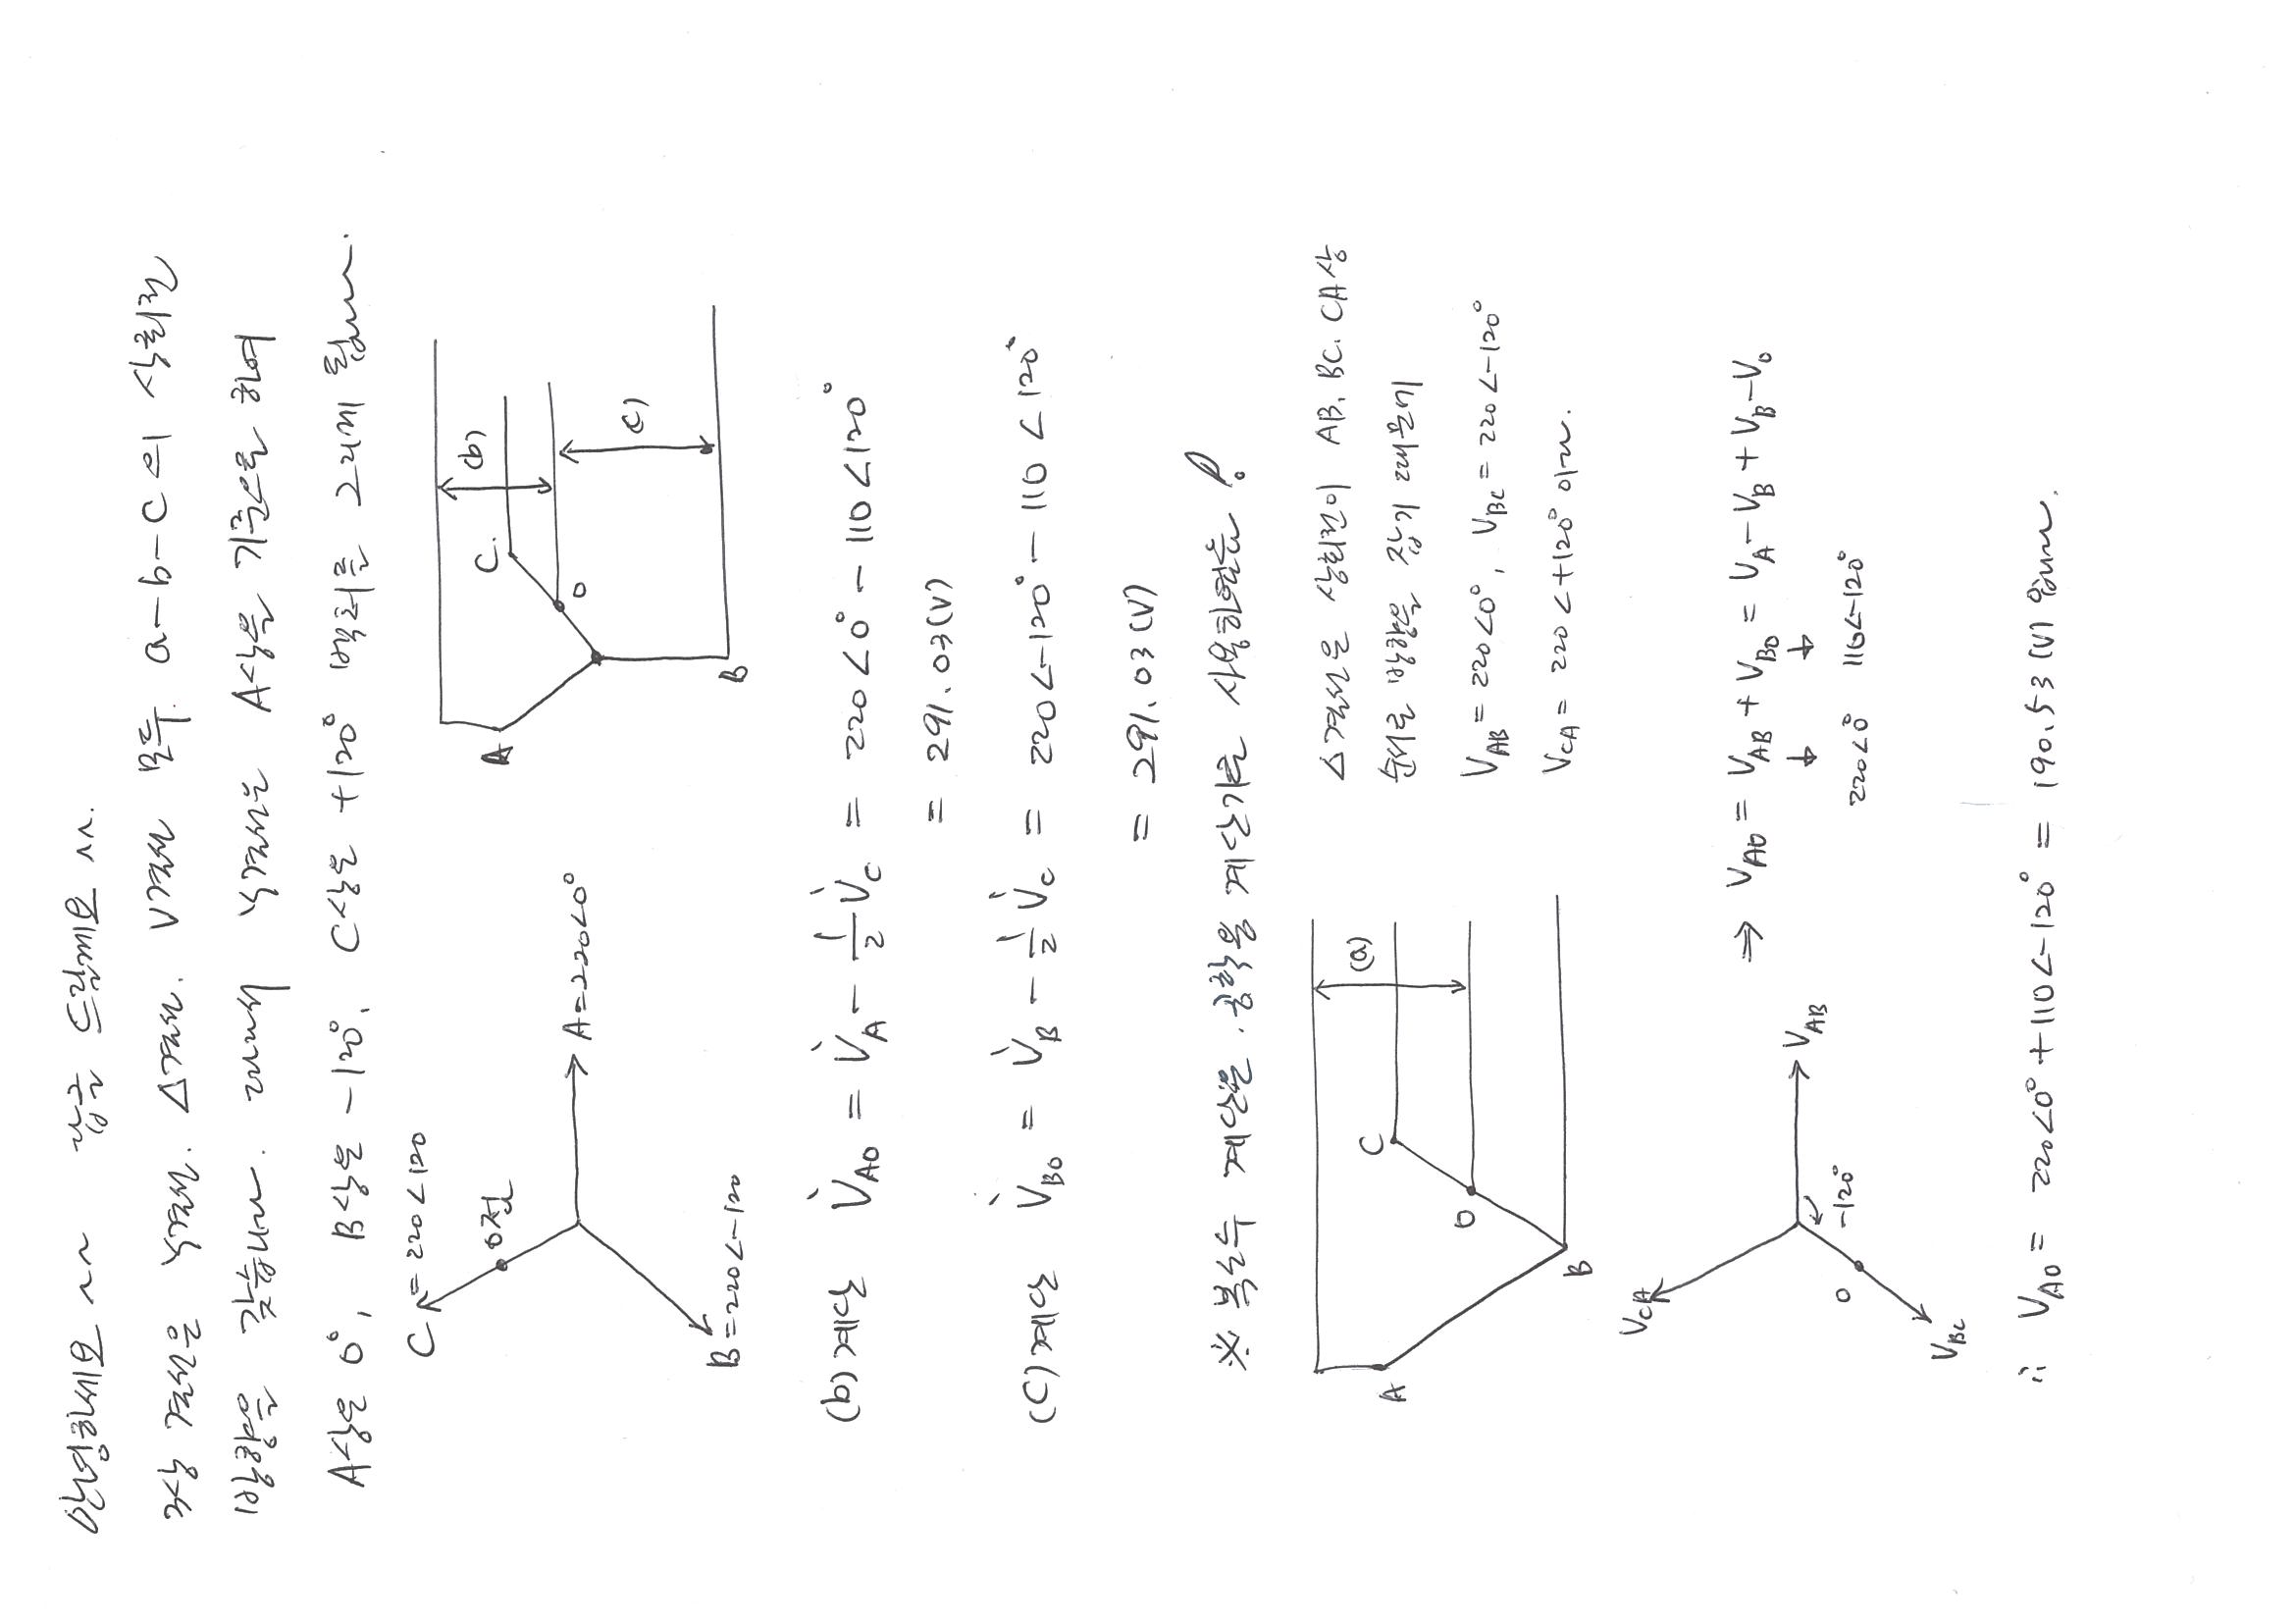 안녕하세요 ~~ 답글 드릴께요 ^^.
3상 결선은 Y결선. Δ결선. V결선 모두 a-b-c의 상회전
방향을 갖습니다. 따라서 Y결선은 A상을 기준으로 하여
A상은 0°, B상은 -120°, C상은 +120° 벡터를 그리게 됩니다.
C = 220∠120
0점
A=220∠0°
B=220∠-120
A
C.
0
B
(b)
(c)
(b) 계산 V̇A0 = V̇A - 1/2 V̇C = 220∠0° - 110∠120°
= 291.03(V)
(C) 계산 V̇B0 = V̇B - 1/2 V̇C = 220∠-120° - 110∠120°
= 291.03(V)
※ 복소수 계산은. 공학용 계산기를 사용하였음
A
C
0
B
(a)
Δ결선은 상회전이 AB. BC. CA상
순서로 방향을 잡기 때문에
VAB = 220∠0°, VBC = 220∠-120°
VCA = 220∠+120° 이다.
VCA
VAB
-120°
0
VBC
⇒ VA0 = VAB + VB0 = VA - VB + VB - V0
↓ ↓
220∠0° 110∠-120°
∴ VA0 = 220∠0° + 110∠-120° = 190.53(V) 입니다.